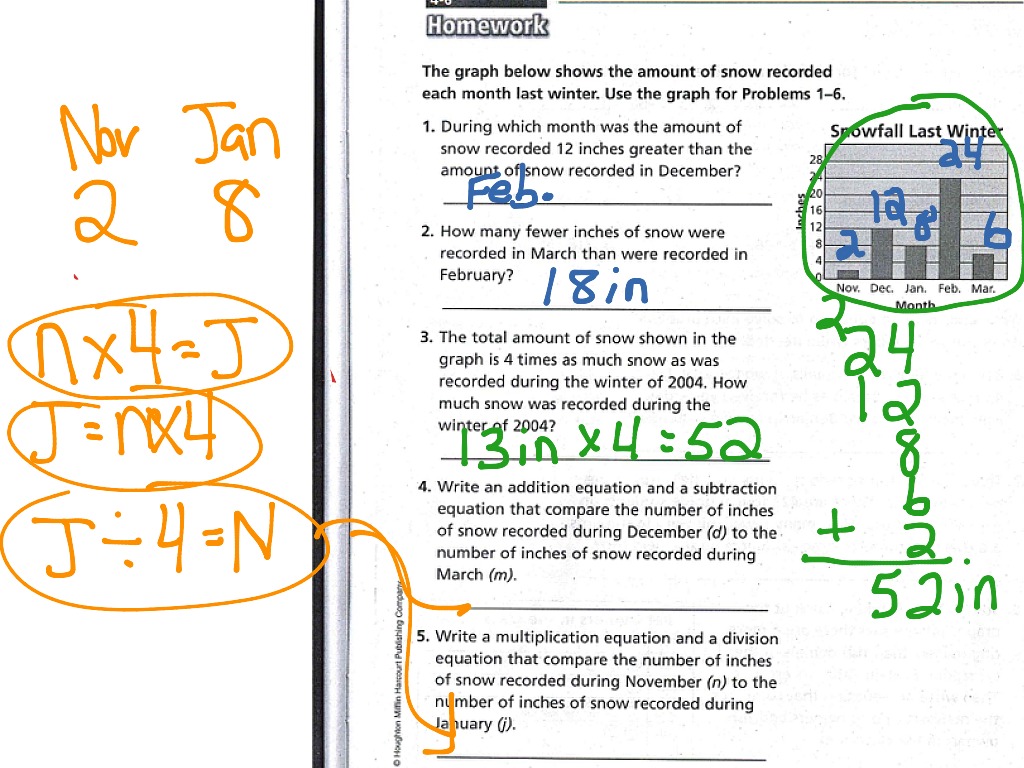 4-6
Homework
The graph below shows the amount of snow recorded
each month last winter. Use the graph for Problems 1–6.
1. During which month was the amount of
snow recorded 12 inches greater than the
amount of snow recorded in December?
Feb.
2. How many fewer inches of snow were
recorded in March than were recorded in
February?
18in
3. The total amount of snow shown in the
graph is 4 times as much snow as was
recorded during the winter of 2004. How
much snow was recorded during the
winter of 2004?
13in x4 = 52
4. Write an addition equation and a subtraction
equation that compare the number of inches
of snow recorded during December (d) to the
number of inches of snow recorded during
March (m).
5. Write a multiplication equation and a division
equation that compare the number of inches
of snow recorded during November (n) to the
number of inches of snow recorded during
January (j).
© Houghton Mifflin Harcourt Publishing Company
Snowfall Last Winter
Inches
28
24
20
16
12
8
4
0
2 12 8 24 6
Nov. Dec. Jan. Feb. Mar.
Month
2
24
12
8
6
+ 2
52in
Nov Jan
2 8
n x 4 = J
J = n x 4
J ÷ 4 = N